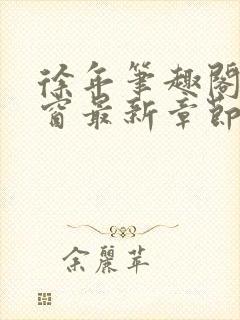 徐年筆趣閣
窗最新章節
余麗苹